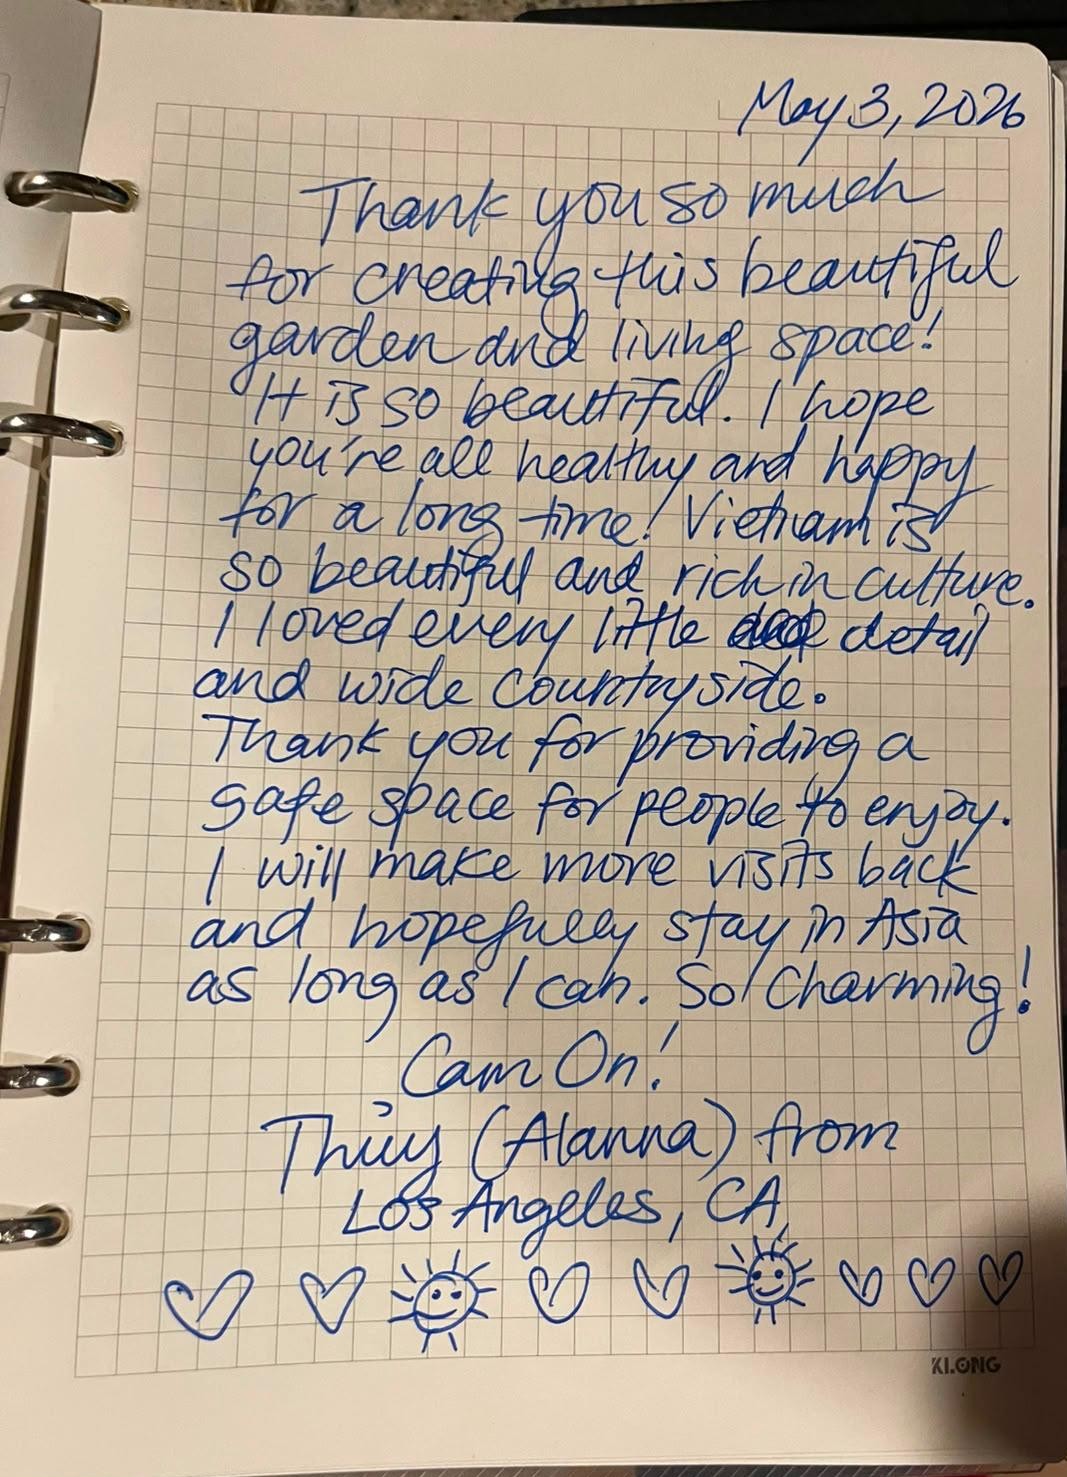 May 3, 2026
Thank you so much
for creating this beautiful
garden and living space!
It is so beautiful. I hope
you're all healthy and happy
for a long time! Vietnam is
so beautiful and rich in culture.
I loved every little detail
and wide countryside.
Thank you for providing a
safe space for people to enjoy.
I will make more visits back
and hopefully stay in Asia
as long as I can. So Charming!
Cam On!
Thủy (Alanna) from
Los Angeles, CA
KLONG